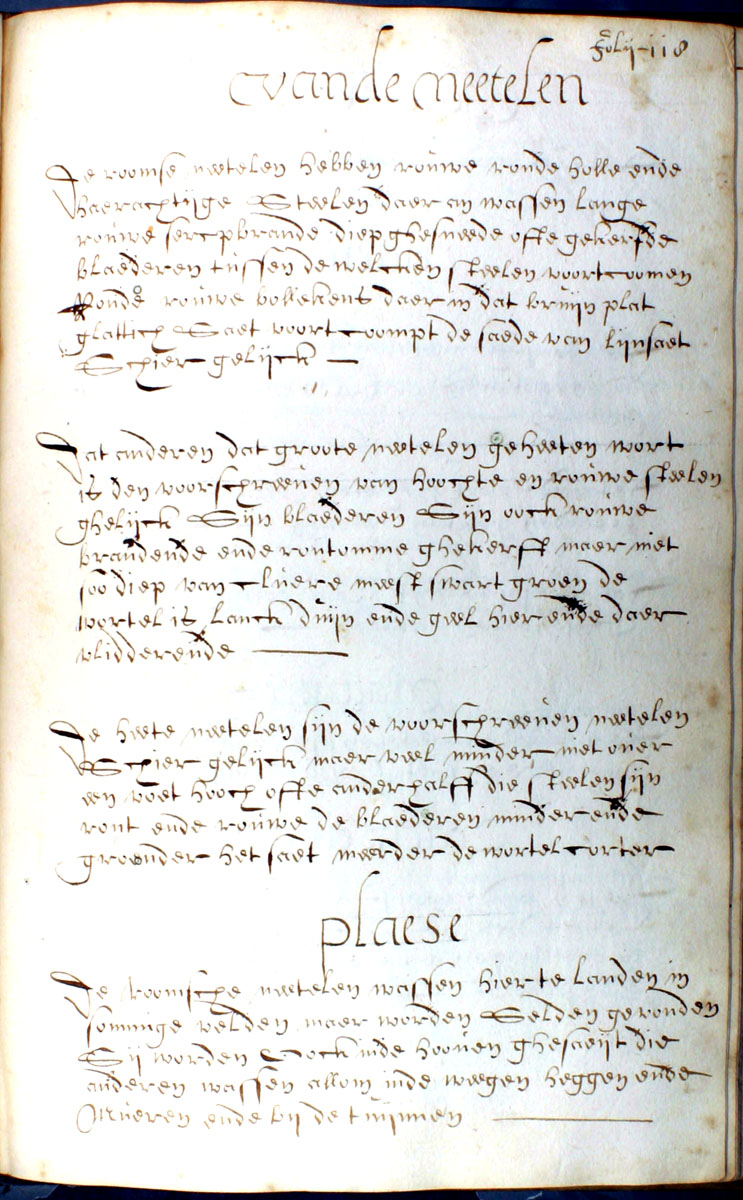 folij 118
vande neetelen
De roomse neetelen hebben rouwe ronde holle ende
haerachtijge Steelen daer an wassen lange
rouwe serpbrande diep ghesneede ofte gekerfde
blaederen tussen de welcken steelen voortcoomen
Ronde rouwe bollekens daer in dat bruijn plat
glattich Saet voortcoompt de saede van lijnsaet
Schier gelijck
Dat anderen dat groote neetelen geheeten wort
is den voorschreeuen van hoochte en rouwe steelen
ghelijck Sijn blaederen Sijn oock rouwe
brandende ende rontomme ghekerft maer niet
soo diep van cluere meest swart groen de
wortel is lanck duijn ende geel hier ende daer
vlidderende
De heete neetelen sijn de voorschreeuen neetelen
Schier gelijck maer veel minder niet ouer
een voet hooch ofte anderhalff die steelen sijn
ront ende rouwe de blaederen minder ende
groender het saet meerder de wortel corter
plaese
De roomsche neetelen wassen hier te landen in
sommige velden maer worden Selden gevonden
Sij worden oock inde hoouen ghesaeijt die
anderen wassen allom inde weegen heggen ende
Mueren ende bij de tuijnnen